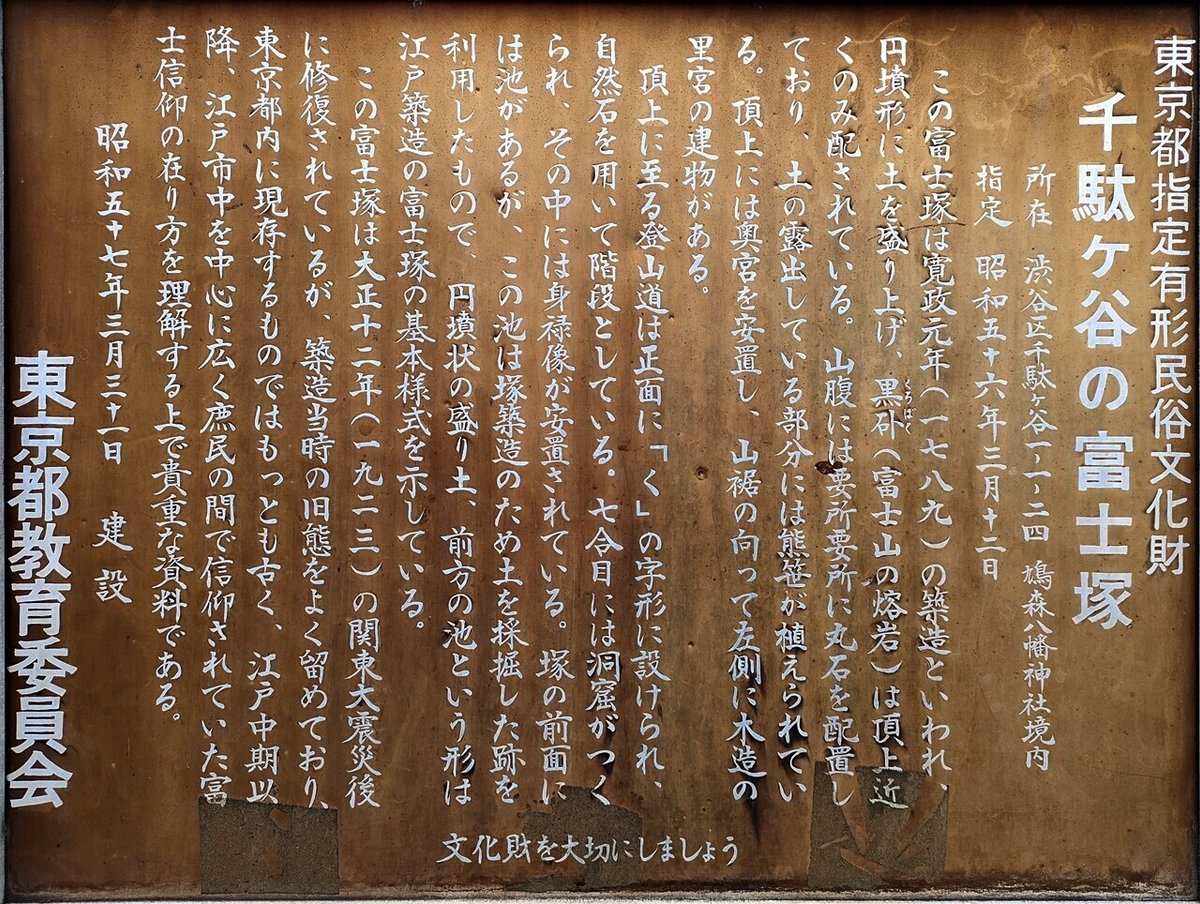 東京都指定有形民俗文化財
千駄ヶ谷の富士塚
所在 渋谷区千駄ヶ谷一、一、二四 鳩森八幡神社境内
指定 昭和五十六年三月十二日
この富士塚は寛政元年(一七八九)の築造といわれ、
円墳形に土を盛り上げ、黒朴(富士山の熔岩)は頂上近
くろぼく
くのみ配されている。山腹には要所要所に丸石を配置し
ており、土の露出している部分には熊笹が植えられてい
る。頂上には奥宮を安置し、山裾の向って左側に木造の
里宮の建物がある。
頂上に至る登山道は正面に「く」の字形に設けられ、
自然石を用いて階段としている。七合目には洞窟がつく
られ、その中には身禄像が安置されている。塚の前面に
は池があるが、この池は塚築造のため土を採掘した跡を
利用したもので、円墳状の盛り土、前方の池という形は
江戸築造の富士塚の基本様式を示している。
この富士塚は大正十二年(一九二三)の関東大震災後
に修復されているが、築造当時の旧態をよく留めており、
東京都内に現存するものではもっとも古く、江戸中期以
降、江戸市中を中心に広く庶民の間で信仰されていた富
士信仰の在り方を理解する上で貴重な資料である。
昭和五十七年三月三十一日 建設
東京都教育委員会
文化財を大切にしましょう